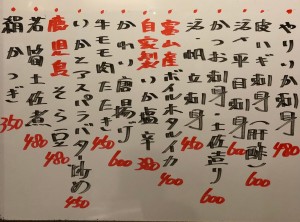 やりいか刺身 480
皮ハギ刺身 600
活〆平目刺身 600
かつお刺身・土佐造り 600
活・帆立刺身 450
富山産ボイルホタルイカ 400
自家製いか塩辛 380
かわり唐揚げ 600
牛モモ肉たたき 600
いかとアスパラバター炒め 450
鹿児島そら豆 480
若筍土佐煮 480
絹かつぎ 350